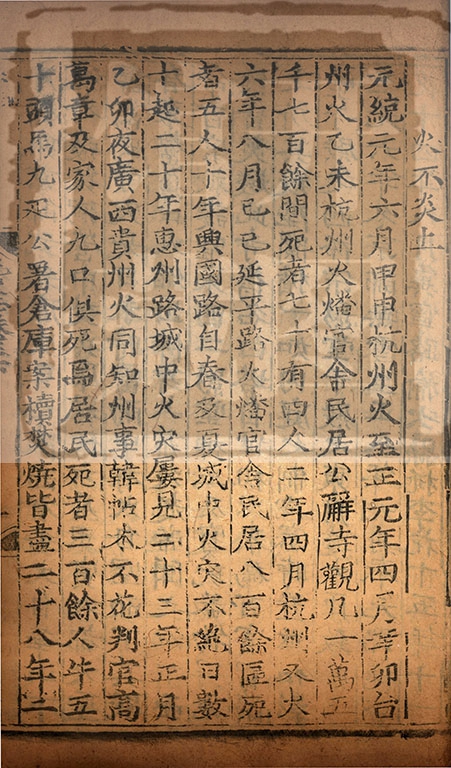 火不炎上
元統元年六月甲申杭州火至正元年四月辛卯台
州火乙未杭州火燔官舍民居公廨寺觀凡一萬五
千七百餘間死者七十有四人二年四月杭州又火
六年八月己巳延平路火燔官舍民居八百餘區死
者五人十年興國路自春及夏城中火災不絶日數
十起二十年惠州路城中火災屢見二十三年正月
乙卯夜廣西貴州火同知州事韓帖木不花判官高
萬章及家人九口俱死焉居民死者三百餘人牛五
十頭馬九疋公署倉庫案牘焚燒皆盡二十八年二